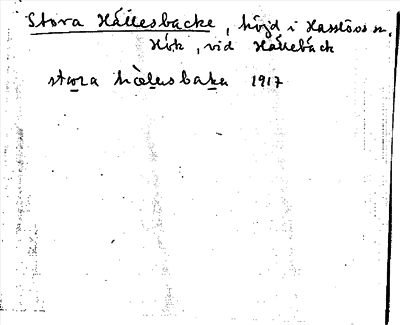 Stora Hällesbacke, höjd i Hasslövs sn,
Hök, vid Hällebäck
stora hælesbaka 1917